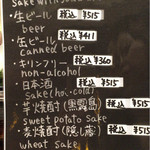 sake with soda
・生ビール 税込 ¥515
beer
・缶ビール 税込 ¥411
canned beer
・キリンフリー 税込 ¥360
non-alcohol
・日本酒 税込 ¥515
sake(hot.cold)
・芋焼酎(黒霧島) 税込 ¥515
sweet potato sake
・麦焼酎(隠し蔵) 税込 ¥515
wheat sake